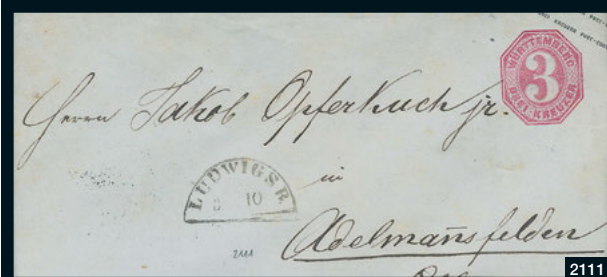 WÜRTTEMBERG
3
DREI-KREUZER
Herrn Jakob Opferkuch jr.
LUDWIGSB.
10
in
2111
Adelmañsfelden
2111